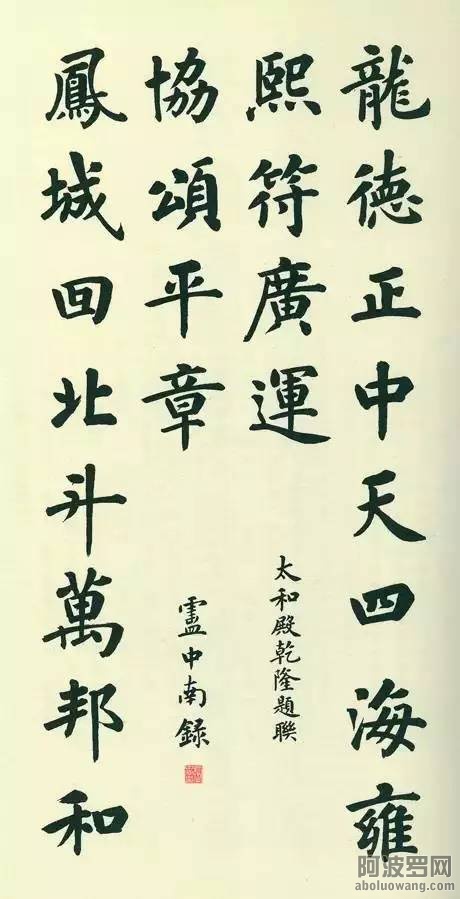 龍德正中天四海雍
熙符廣運
鳳城回北斗萬邦和
協頌平章
太和殿乾隆題聯
盧中南錄
阿波罗网
aboluowang.com